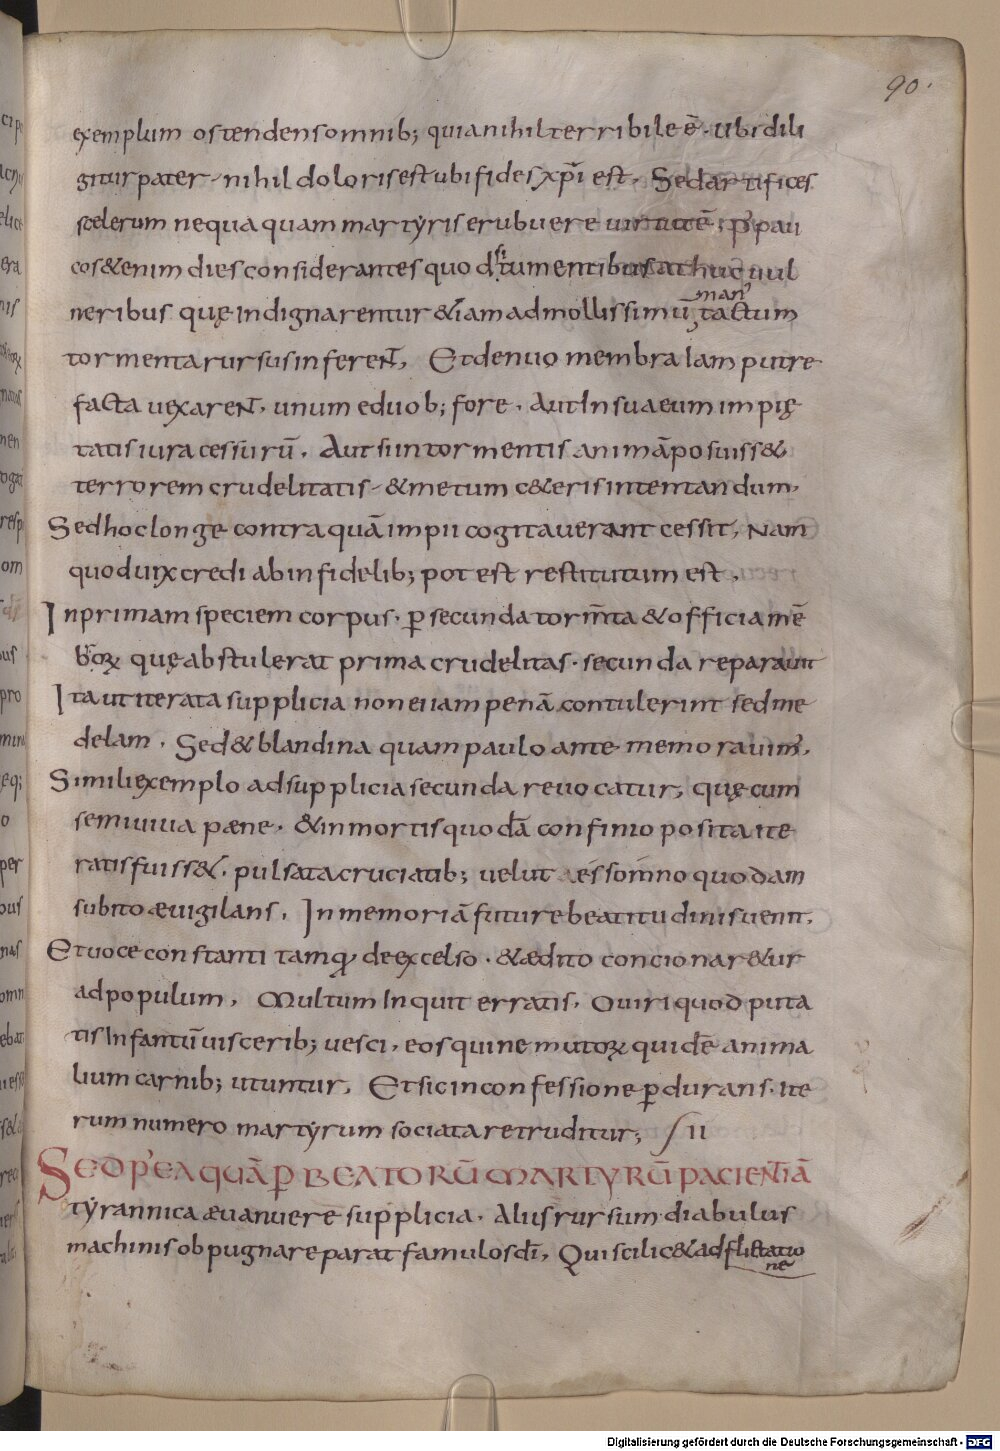 90.
exemplum ostendens omnib; quia nihil terribile ē. ubi dili
gitur pater, nihil doloris est ubi fides xp̄i est. Sed artifices
scelerum nequaquam martyris erubuere uirtutē; p' pau
cos & enim dies considerantes quod si tumentibus athuc uul
neribus quę indignarentur & iam ad mollissimū man' tactum
tormenta rursus inferent, Et denuo membra iam putre
facta uexarent, unum e duob; fore. Aut in sua eum impię
tatis iura cessurū. Aut si in tormentis animā posuiss&
terrorem crudelitatis, & metum c&eris intentandum,
Sed hoc longe contra quā impii cogitauerant cessit, Nam
quod uix credi ab infidelib; potest restitutum est,
In primam speciem corpus. p secunda torm̄ta & officia mē
broꝝ quę abstulerat prima crudelitas. secunda reparauit
Ita ut iterata supplicia non etiam penā contulerint sed me
delam. Sed & blandina quam paulo ante memorauim',
Simili exemplo ad supplicia secunda reuocatur, quę cum
semiuiua pæne, & in mortis quodā confinio posita ite
ratis fuiss&, pulsata cruciatib; uelut aes somno quodam
subito æuigilans, In memoriā future beatitudinis uenit,
Et uoce constanti tamq' de excelso. & ædito concionar&ur
ad populum, Multum inquit erratis, O uiri quod puta
tis infantū uiscerib; uesci, eos qui nec mutoꝝ quidē anima
lium carnib; utuntur, Et sic in confessione pdurans. ite
rum numero martyrum sociata retruditur; S II
SED P' EA QUĀ P BEATORŪ MARTYRŪ PACIENTIĀ
tyrannica æuanuere supplicia. Alus rursum diabulus
machinis obpugnare parat famulos dī, Qui scilic& adflictatio
nē
Digitalisierung gefördert durch die Deutsche Forschungsgemeinschaft - DFG